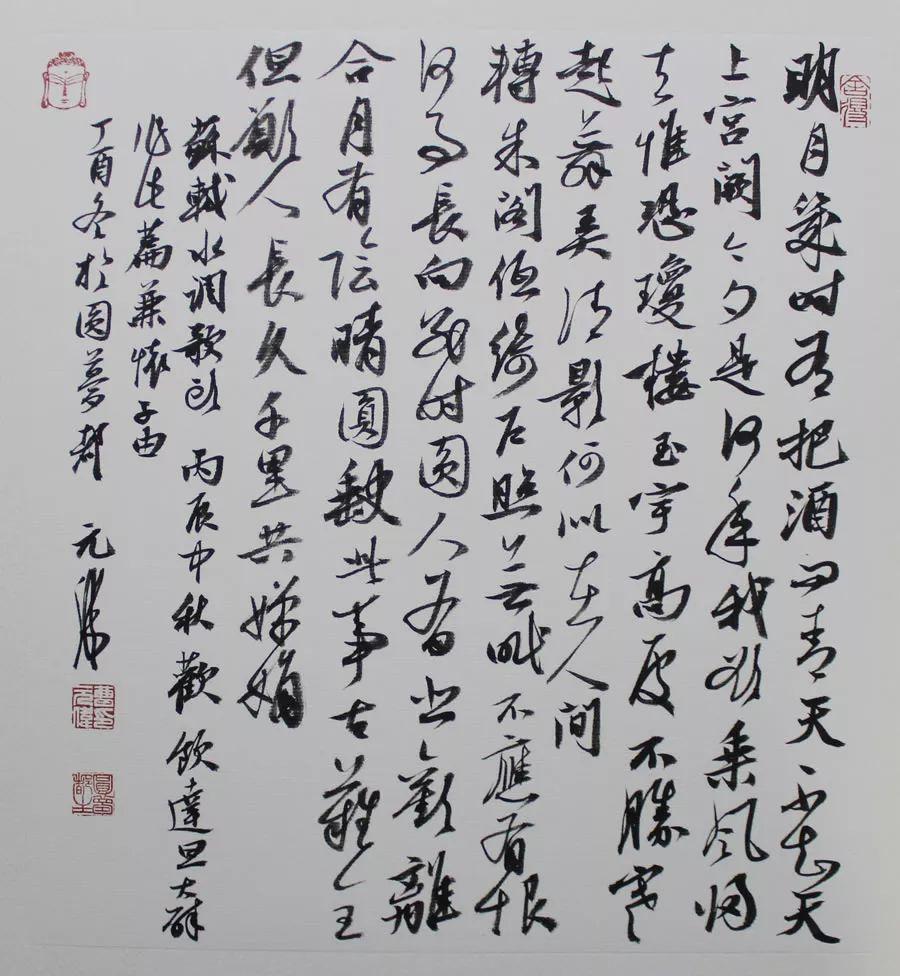 舍得
明月幾时有把酒问青天不知天
上宫阙今夕是何年我欲乘风归
去惟恐瓊樓玉宇高處不勝寒
起舞弄清影何似在人间
轉朱阁低绮户照无眠不應有恨
何事長向别时圆人有悲歡離
合月有阴晴圆缺此事古難全
但願人長久千里共嬋娟
蘇軾水调歌头 丙辰中秋歡飲達旦大醉
作此篇兼懷子由
丁酉冬於圆夢都 元